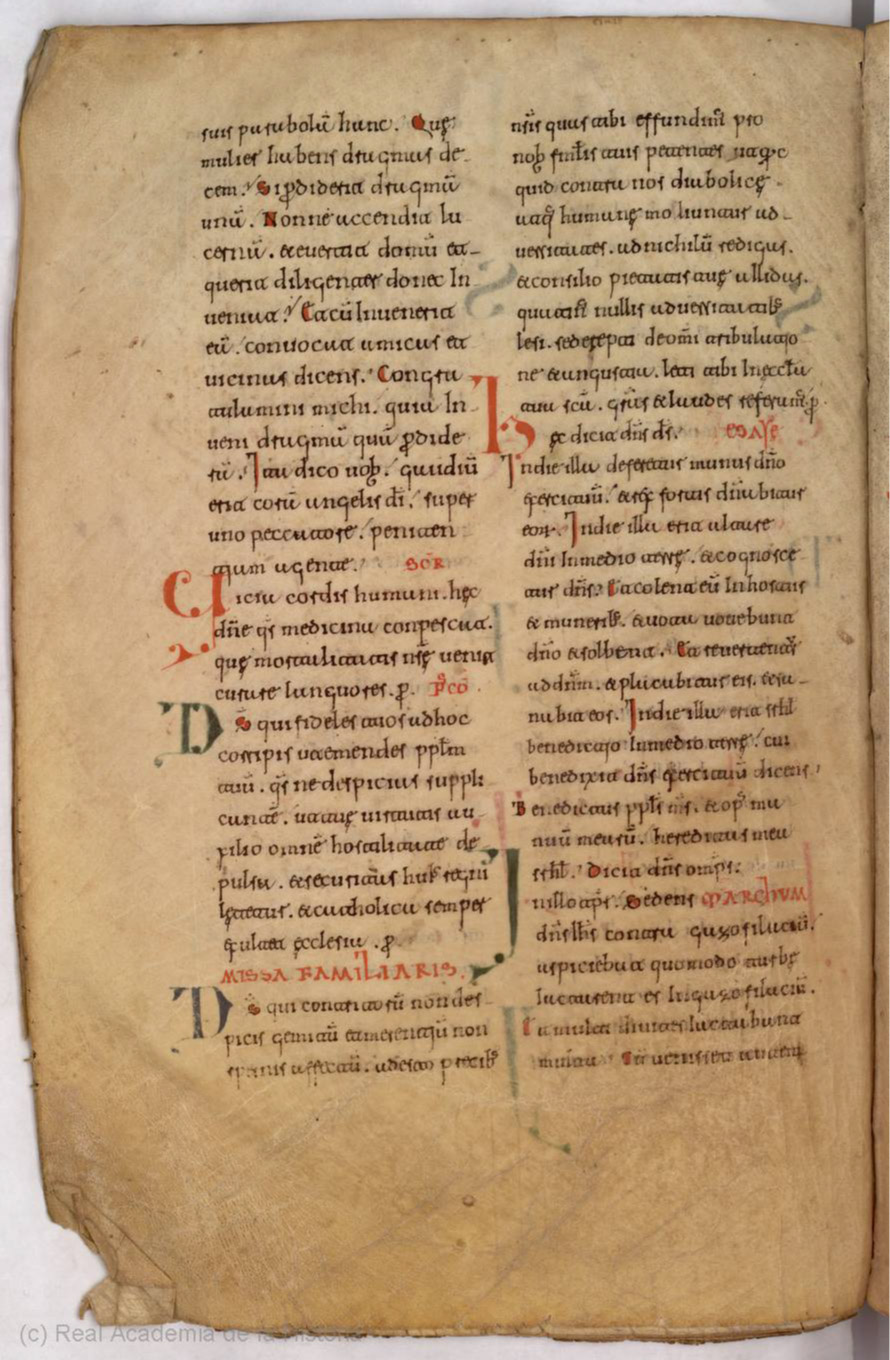 suis parabolā hanc. Quę
mulier habens dragmas de
cem. Si ꝑdiderit dragmā
unā. Nonne accendit lu
cernā. et everrit domū et
querit diligenter donec in
veniat. Et cū invenerit
eā. convocat amicas et
vicinas dicens. Congra
tulamini michi. quia in
veni dragmā quā ꝑdide
rā. Ita dico vob. gaudiū
erit corā angelis dī. super
uno peccatore. peniten
tiam agente. SCR
Vitia cordis humani. hęc
dñe qs medicina conpescat.
quę mortalitatis nrę venit
curare languores. ꝑ. PCO.
Ds qui fideles tuos adhoc
corripis ut emendes pplm
tuū. qs ne despicias suppli
cantē. ut tuę virtutis au
xilio omnē hostilitatē de
pulsa. et securitas huic regni
lętetur. et catholica semper
exulte ęcclesia. ꝑ
MISSA FAMILIARIS
Ds qui contritorū non des
picis gemitū et merentiū non
spernis affectū. adesto precib
nris quas tibi effundim pro
nob famlis tuis petentes ut quic
quid contra nos diabolicę
atq humanę moliuntur ad
versitates. ad nichilū redigas.
et consilio pietatis tuę allidas.
quatin nullis adversitatib
lesi. sed erepti de omi tribulatio
ne et angustia. leti tibi in ecclā
tua scā. grās et laudes referam ꝑ
Hęc dicit dñs ds. ESAYE
In die illa deferetur munus dño
exercituū.
eor. In die illa erit altare
dñi in medio terrę. et cognosce
tur dñs. Et colent eū in hostiis
et munerib. et vota vovebunt
dño et solvent. Et revertentur
ad dnm. et placabitur eis. et sa
nabit eos. In die illa erit srhl
benedictio in medio terrę. cui
benedixit dñs exercituū dicens
Benedictus ppls ms. et op ma
nuū mearū. hereditas mea
srhl. Dicit dñs omps.
In illo tpr. Sedens MARCHUM
dñs ihs contra gazofilaciū.
aspiciebat quomodo turbę
iactarent es in gazofilaciū.
Et multi divites iactabant
multa Cū venisset autem